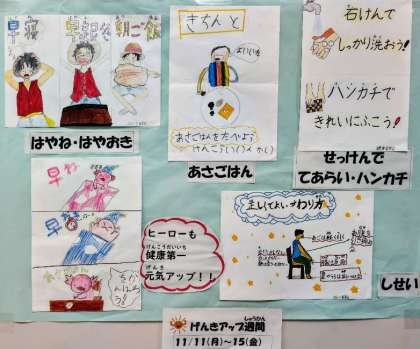 早寝
早起き
朝ご飯
はやね・はやおき
きちんと
あさごはんをたべよう
あさごはん
石けんで
しっかり洗おう!
ハンカチで
きれいにふこう!
せっけんで
てあらい・ハンカチ
早ね
早おき
ヒーローも
けんこうだいいち
健康第一
げんき
元気アップ!!
正しくてよいすわり方
しせい
しゅうかん
げんきアップ週間
11/11(月)~15(金)